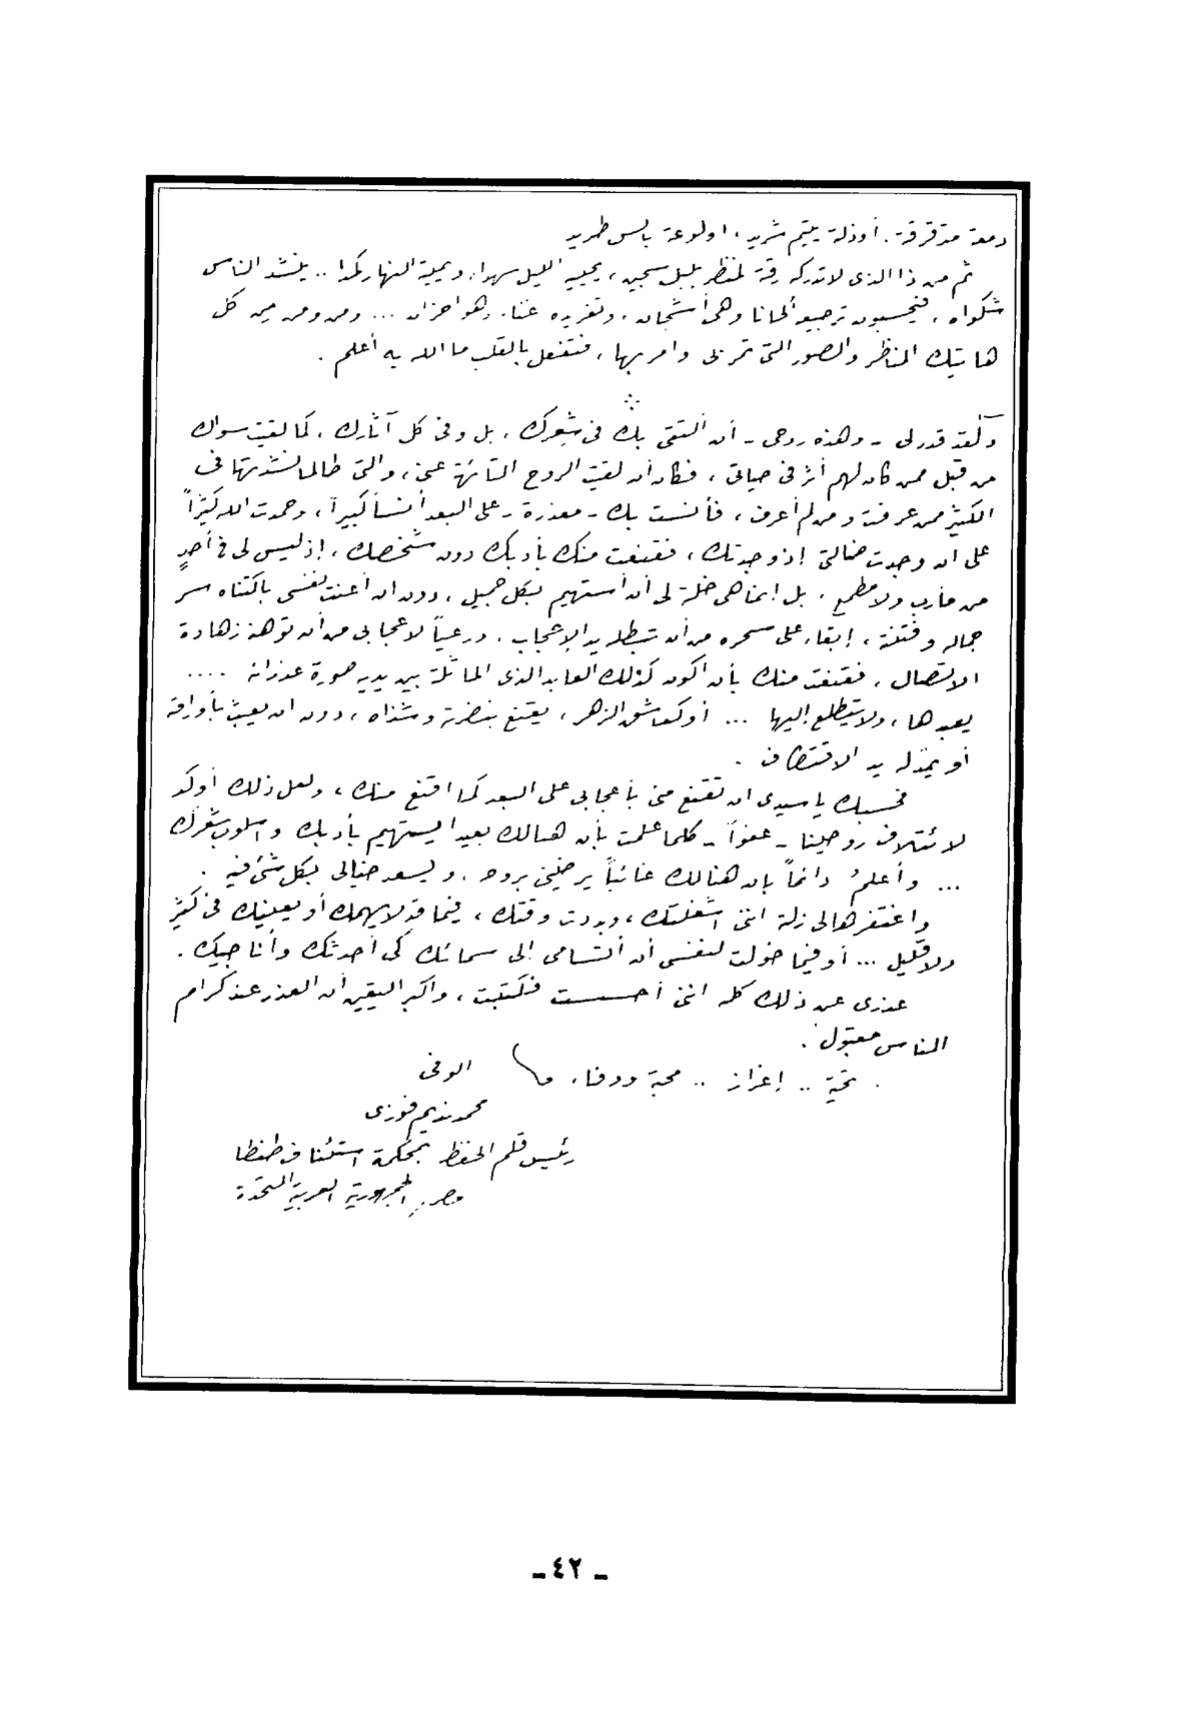 دمعة مترقرقة. أو ذلة يتيم شريد، او لوعة بائس طريد
ثم من ذا الذى لا تدركه رقة لمنظر بلبل سجين، يحييه الليل سهدا، ويميته النهار كمدا .. ينشد الناس
شكواه، فيحسبون ترجيعه ألحانا وهى أشجان، وتغريده غناء وهو احزان ... ومن ومن من كل
هاتيك المناظر والصور التى تمر بى وامر بها، فتفعل بالقلب ما الله به أعلم.
ولقد قدر لى - وهذه روحى - أن ألتقى بك فى شعرك، بل وفى كل آثارك، كما لقيت سواك
من قبل ممن كان لهم أثر فى حياتى، فكان أن لقيت الروح التائهة عنى، والتى طالما نشدتها فى
الكثير ممن عرفت ومن لم أعرف، فأنست بك - معذرة - على البعد أنسأ كبيراً، وحمدت الله كثيراً
على ان وجدت ضالتى إذ وجدتك، فقنعت منك بأدبك دون شخصك، إذ ليس لى فى أحدٍ
من مأرب ولا مطمع، بل إنما هى خلة لى أن أستهيم بكل جميل، دون ان أعنت نفسى باكتناه سر
جماله وفتنته، إبقاء على سحره من أن تبطله يد الإعجاب، ورعياً لاعجابى من أن توهنه زهادة
الاتصال، فقنعت منك بأن اكون كذلك العابد الذى الماثلة بين يديه صورة عذرائه ....
يعبدها، ولا يتطلع إليها ... أو كعاشق الزهر، يقنع بنضرته وشذاه، دون ان يعبث بأوراقه
أو يمد له يد الاقتطاف.
فحسبك يا سيدى ان تقنع منى بأعجابى على البعد كما اقنع منك، ولعل ذلك أوكد
لائتلاف روحينا - عفواً - كلما علمت بأن هنالك بعيدا يستهيم بأدبك واسلوب شعرك
... وأعلمُ دائماً بان هنالك غائباً يرضينى بروحه، ويسعد خيالى بكل شئ فيه.
واغتفرها لى زلة اننى اشغلتك، وبددت وقتك، فيما قد لا يهمك أو يعنيك فى كثير
ولا قليل ... أو فيما خولت لنفسى أن أتسامى إلى سمائك كى أحدثك وأناجيك.
عذرى عن ذلك كله اننى أحسست فكتبت، واكبر اليقين أن العذر عند كرام
الناس مقبول.
تحية .. إعزاز .. محبة ووفاء
الوفى
محمد نديم فوزى
رئيس قلم الحفظ بمحكمة استئناف طنطا
مصر الجمهورية العربية المتحدة
- ٤٢ -